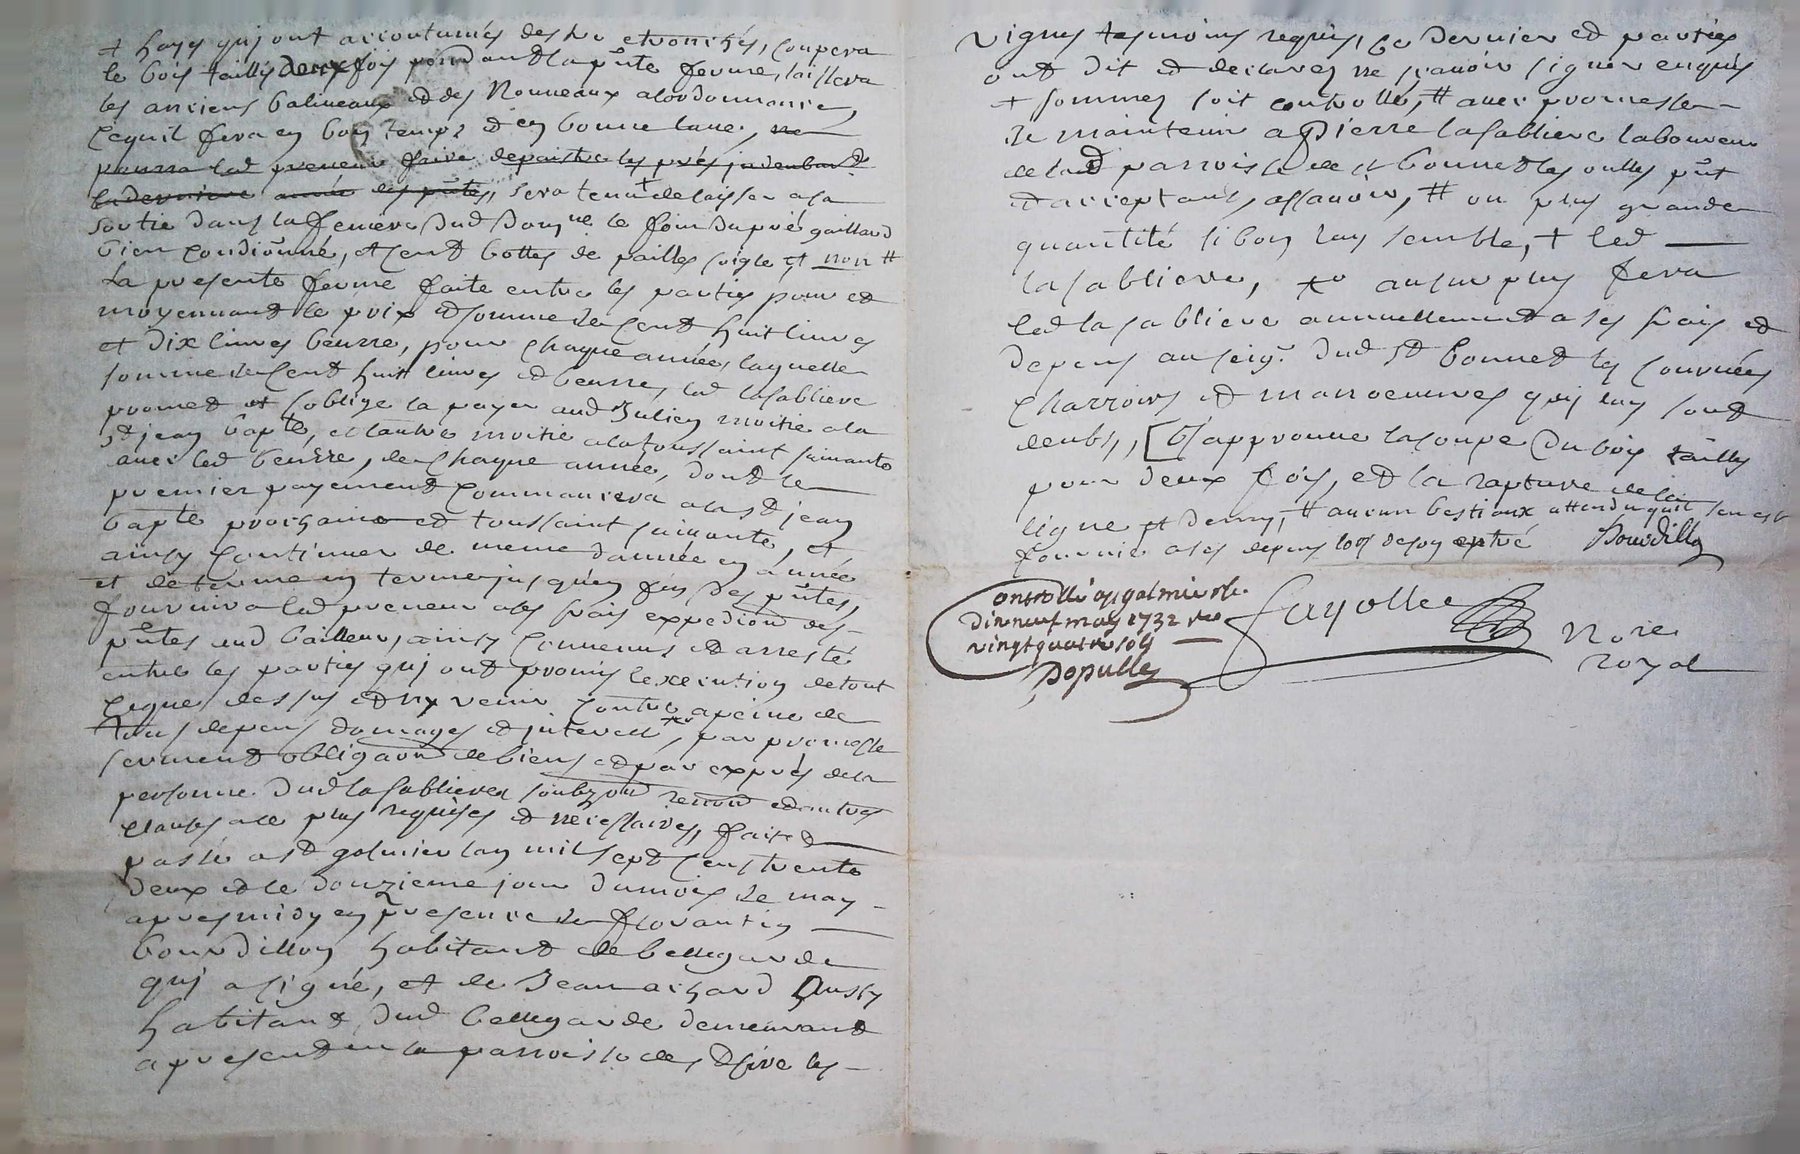 + hayes quj ont accoutumés destre etronchés, coupera
le bois taillis deux fois pendant la pnte ferme, laissera
les anciens baliveaux et des nouveaux a lordonnance,
ce quil fera en bon temps et en bonne lune, ne
pourra led preneur faire depaistre les prés
la derniere année des pntes, sera tenu + de laisser a sa
sortie dans la feniere dud domne le foin du pré gaillard
bien condionné, et cent bottes de pailles soigle et non #
La presente ferme faite entre les parties pour et
moyennant le prix et somme de cent huit livres
et dix livres beurre, pour chaque année, laquelle
somme de cent huit livres et beurre, led lasabliere
promet et soblige la payer aud Julien moitié a la
st jean bapte, et lautre moitié a la toussaint suivante
avec led beurre, de chaque année, dont le
premier payement commancera a la st jean
bapte prochaine et toussaint suivante, et
ainsy continuer de meme dannée en année
et de terme en terme jusquen fin des pntes,
fournira led preneur a ses frais expedion des
pntes aud bailleur, ainsy convenus et arresté
entre les parties quj ont promis lexecution de tout
ce que dessus et ny venir contre a peine de
tous depens domages et interest, par promesse
serment obligaon de biens et par exprés de la
personne dud lasabliere soubzon renon et autres
clauses a ce plus requises et necessaires, fait et
passé a st galmier lan mil sept cens trente
deux et le douzieme jour du mois de may
apres midy en presence de florantin
bourdillon habitant de bellegarde
quj a signé, et de Jean achard aussy
habitant dud bellegarde demeurant
a present en la parroisse de les
vignes tesmoins requis, ce dernier et parties
ont dit et declarez ne scavoir signer enquis
+ sommez soit controllé, # avec promesse
de maintenir a pierre lasabliere laboureur
de lad parroisse de st bonnet les oulles pnt
et acceptant, assavoir, # ou plus grande
quantité si bon luy semble, + led
lasabliere, au surplus fera
led lasabliere annuellement a ses frais et
depens au seigr dud st bonnet les courvées
charrois et manoeuvres quj luy sont
deubs, approuve la coupe du bois taillis
pour deux fois, et la rapture de la
ligne et demy, # aucun bestiaux attendu quil sen est
fournie a ses depens lors de son entré Bourdillon
Controllé a st galmier le
dix neuf may 1732 Reçu
vingt quatre sols
Dopulles
fayolle
Nore
royal